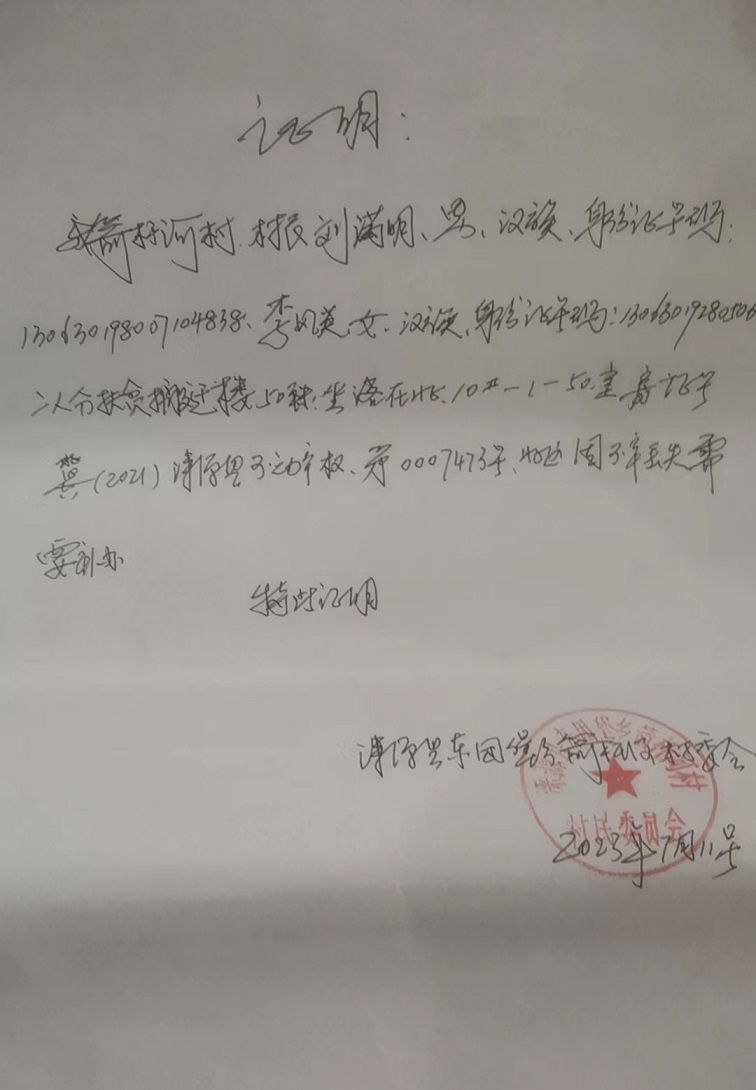 证明:
箭杆河村.村民刘满明、男、汉族、身份证号码:
130630198007104838、李凤英、女、汉族、身份证号码:13063019280506
二人分扶贫搬迁楼50平.坐落在 10#-1-50室 房证号
冀(2021)涞源县不动产权、第0007473号、 因不幸丢失需
要补办
特此证明
涞源县东团堡乡箭杆河村委会
2023年7月11号
村民委员会